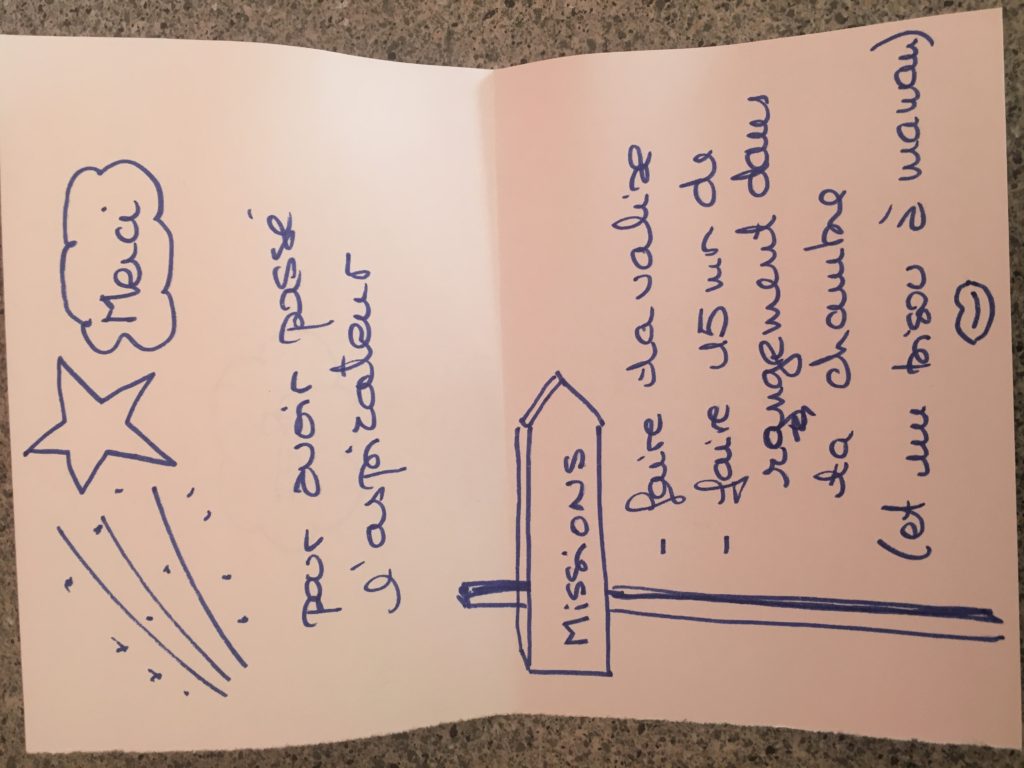 Merci
pour avoir passé
l'aspirateur
MISSIONS
- faire ta valise
- faire 15 mn de
rangement dans
ta chambre
(et un bisou à maman)